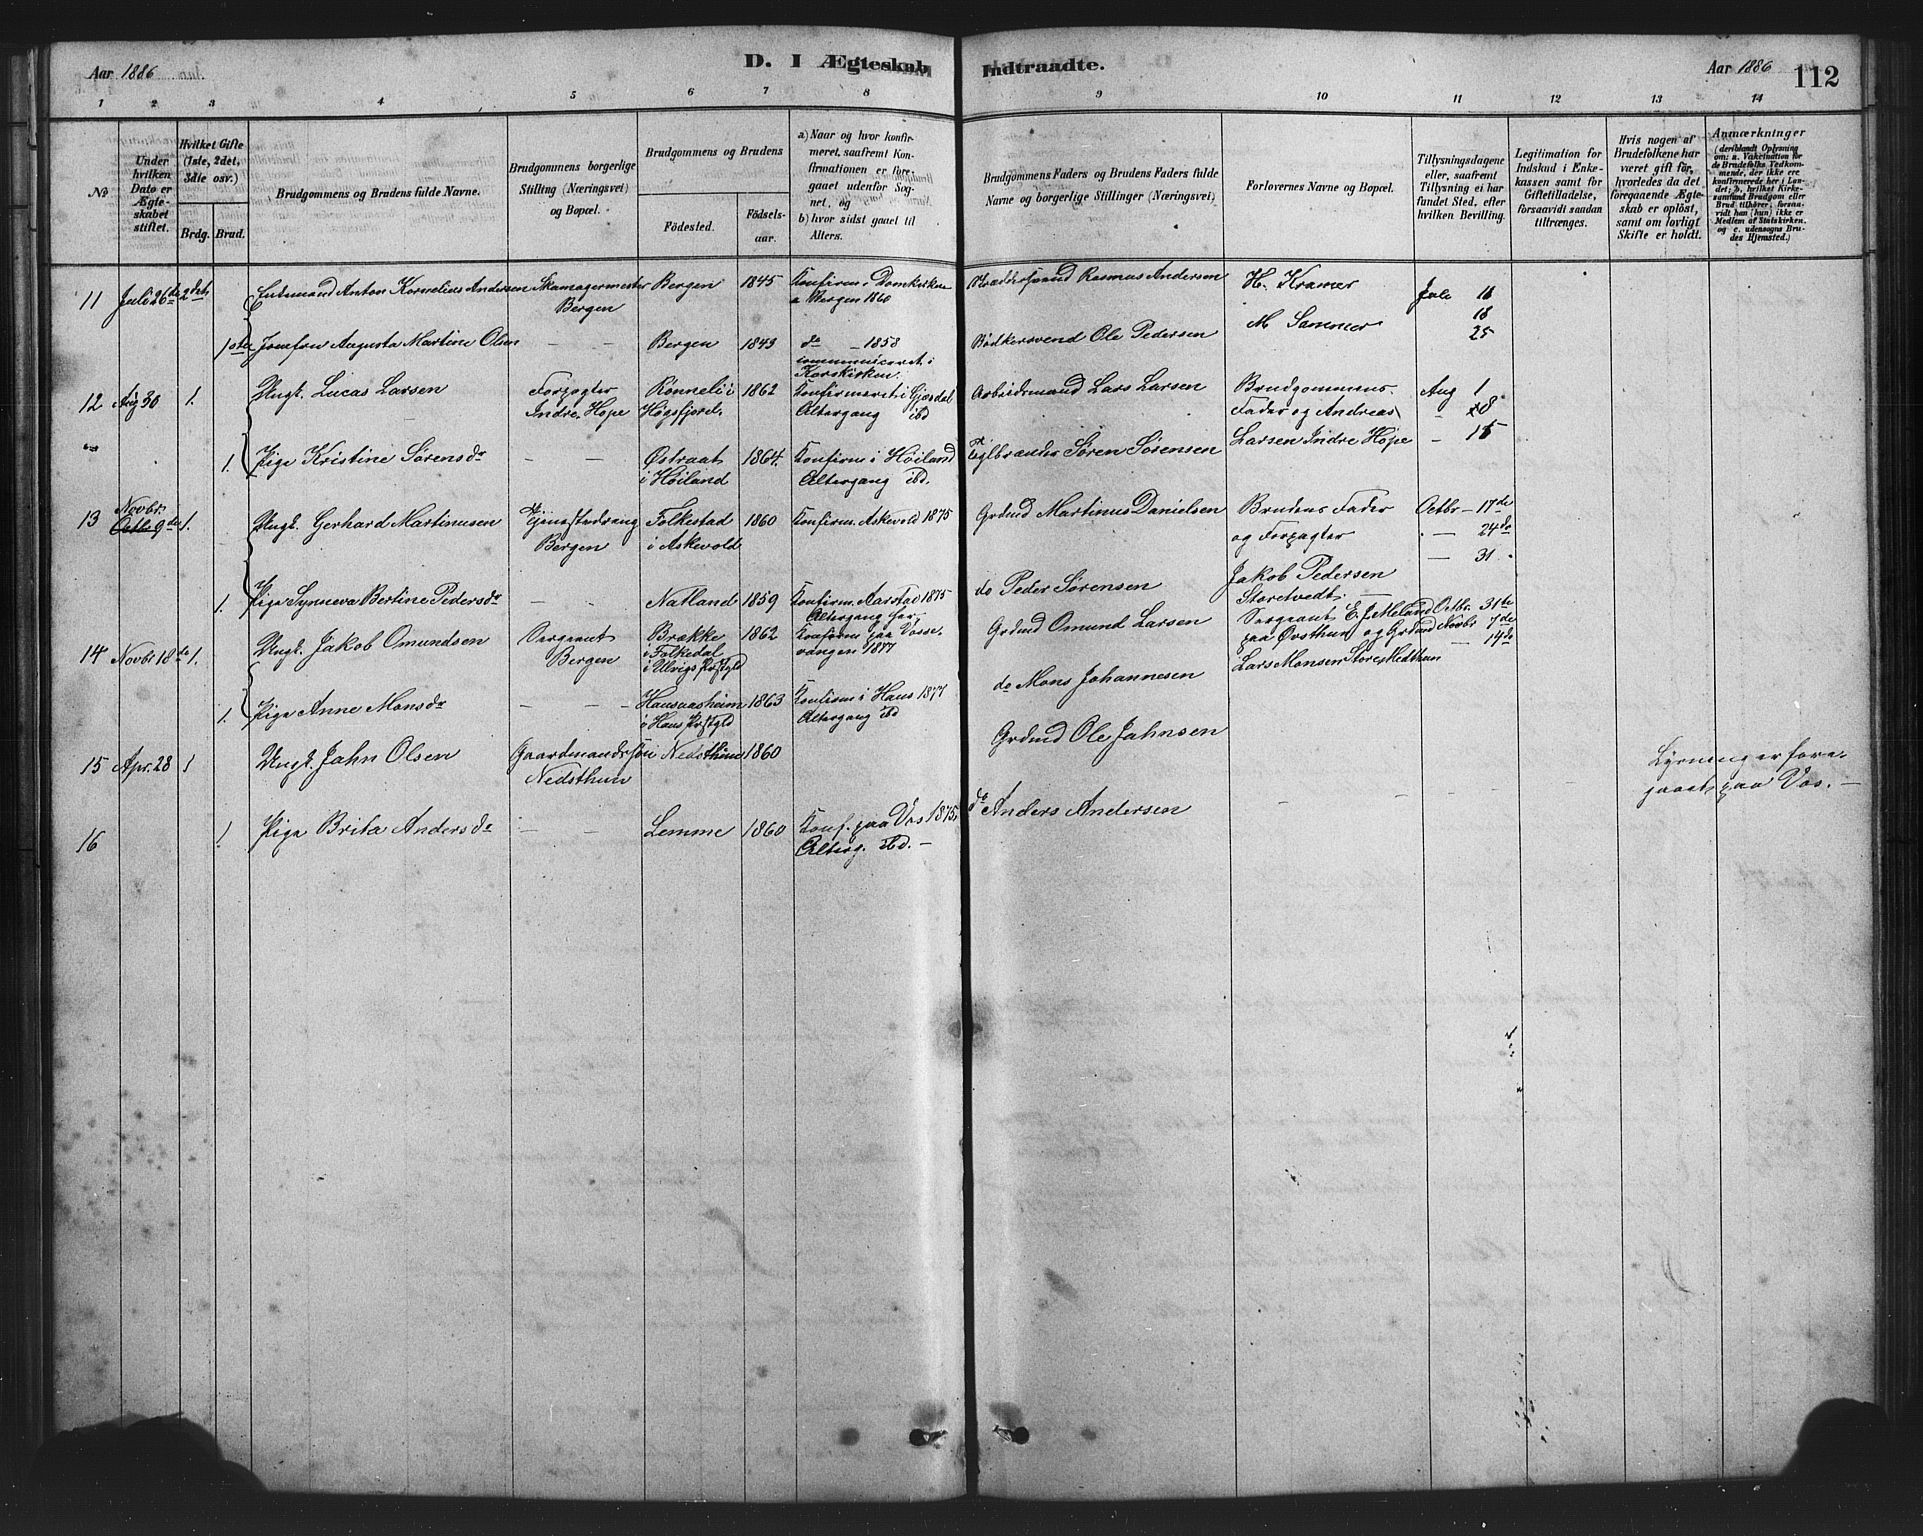 Aar 1886
D. I Ægteskab Indtraadte.
Aar 1886 112
1 2 3 4 5 6 7 8 9 10 11 12 13 14
No
Under hvilken Dato er Ægteskabet stiftet.
Hvilket Gifte (1ste, 2det, 3die osv.)
Brdg. Brud.
Brudgommens og Brudens fulde Navne.
Brudgommens borgerlige Stilling (Næringsvei) og Bopæl.
Brudgommens og Brudens
Födested.
Födselsaar.
a) Naar og hvor konfirmeret, saafremt Konfirmationen er foregaaet udenfor Sognet, og
b) hvor sidst gaaet til Alters.
Brudgommens Faders og Brudens Faders fulde Navne og borgerlige Stillinger (Næringsvei)
Forlovernes Navne og Bopæl.
Tillysningsdagene eller, saafremt Tillysning ei har fundet Sted, efter hvilken Bevilling.
Legitimation for Indskud i Enkekassen samt for Giftetilladelse, forsaavidt saadan tiltrænges.
Hvis nogen af Brudefolkene har været gift för, hvorledes da det foregaaende Ægteskab er oplöst, samt om lovligt Skifte er holdt.
Anmærkninger (deriblandt Oplysning om: a. Vakcination for de Brudefolks Vedkommende, der ikke ere konfirmerede her i Landet; b. hvilket Kirkesamfund Brudgom eller Brud tilhörer, forsaavidt han (hun) ikke er Medlem af Statskirken, og c. udensogns Brudes Hjemsted.)
11 Juli 26de 2det Enkemand Anton Kornelius Andersen Skomagermester Bergen Bergen 1845 Konfirm. i Domkirken i Bergen 1860 Rasmus Andersen H. Kramer Juli 11
18
25
1ste Jomfru Augusta Martine Olsen — — Bergen 1843 do — 1858 communiceret i Korskirken. Bödkersvend Ole Pedersen M Sammer
12 Aug 30 1. Ungk. Lucas Larsen Forpagter Indre Hope Rönneli i Högsfjord 1862 Konfirmeret i Gjesdal Altergang ibd Arbeidsmand Lars Larsen Brudgommens Fader og Andreas Larsen Indre Hope Aug 1
— 8
— 15
1. Pige Kristine Sörensdr — — Östraat i Höiland 1864. Konfirm i Höiland Altergang ibd. Teglbrænder Sören Sörensen
13 Novbr. 9de 1. Ungk. Gerhard Martinusen Tjenestedreng Bergen Folkestad i Askevold 1860 Konfirm. Askevold 1875 Grdmd Martinus Danielsen Brudens Fader og Forpagter Jakob Pedersen Storetvedt. Octbr — 17de
— 24de
— 31
1. Pige Synneva Bertine Pedersdr — — Natland 1859 Konfirm. Aarstad 1875 Altergang her. do Peder Sörensen
14 Novbr 18de 1. Ungk. Jakob Omundsen Sergeant Bergen Brække i Folkedal i Ulvigs Prstgld 1862 Konfirm paa Vossevangen 1877 Grdmd Omund Larsen Sergeant E. J. Meland paa Övsthun og Grdmd Lars Monsen Store Midthun Octbr. 31te
Novbr 7de
— 14de
1. Pige Anne Monsdr — — Hansaasheim i Haus Prstgld 1863 Konfirm i Haus 1877 Altergang ibd do Mons Johannesen
15 Apr. 28 1 Ungk. Jahn Olsen Gaardmandssön Nedsthun Nedsthun 1860 Grdmd Ole Jahnsen Lysning er foregaaet paa Vos. —
16 1. Pige Brita Andersdr — — Lemme 1860 Konf. paa Vos 1875. Alterg. ibd. — do Anders Andersen